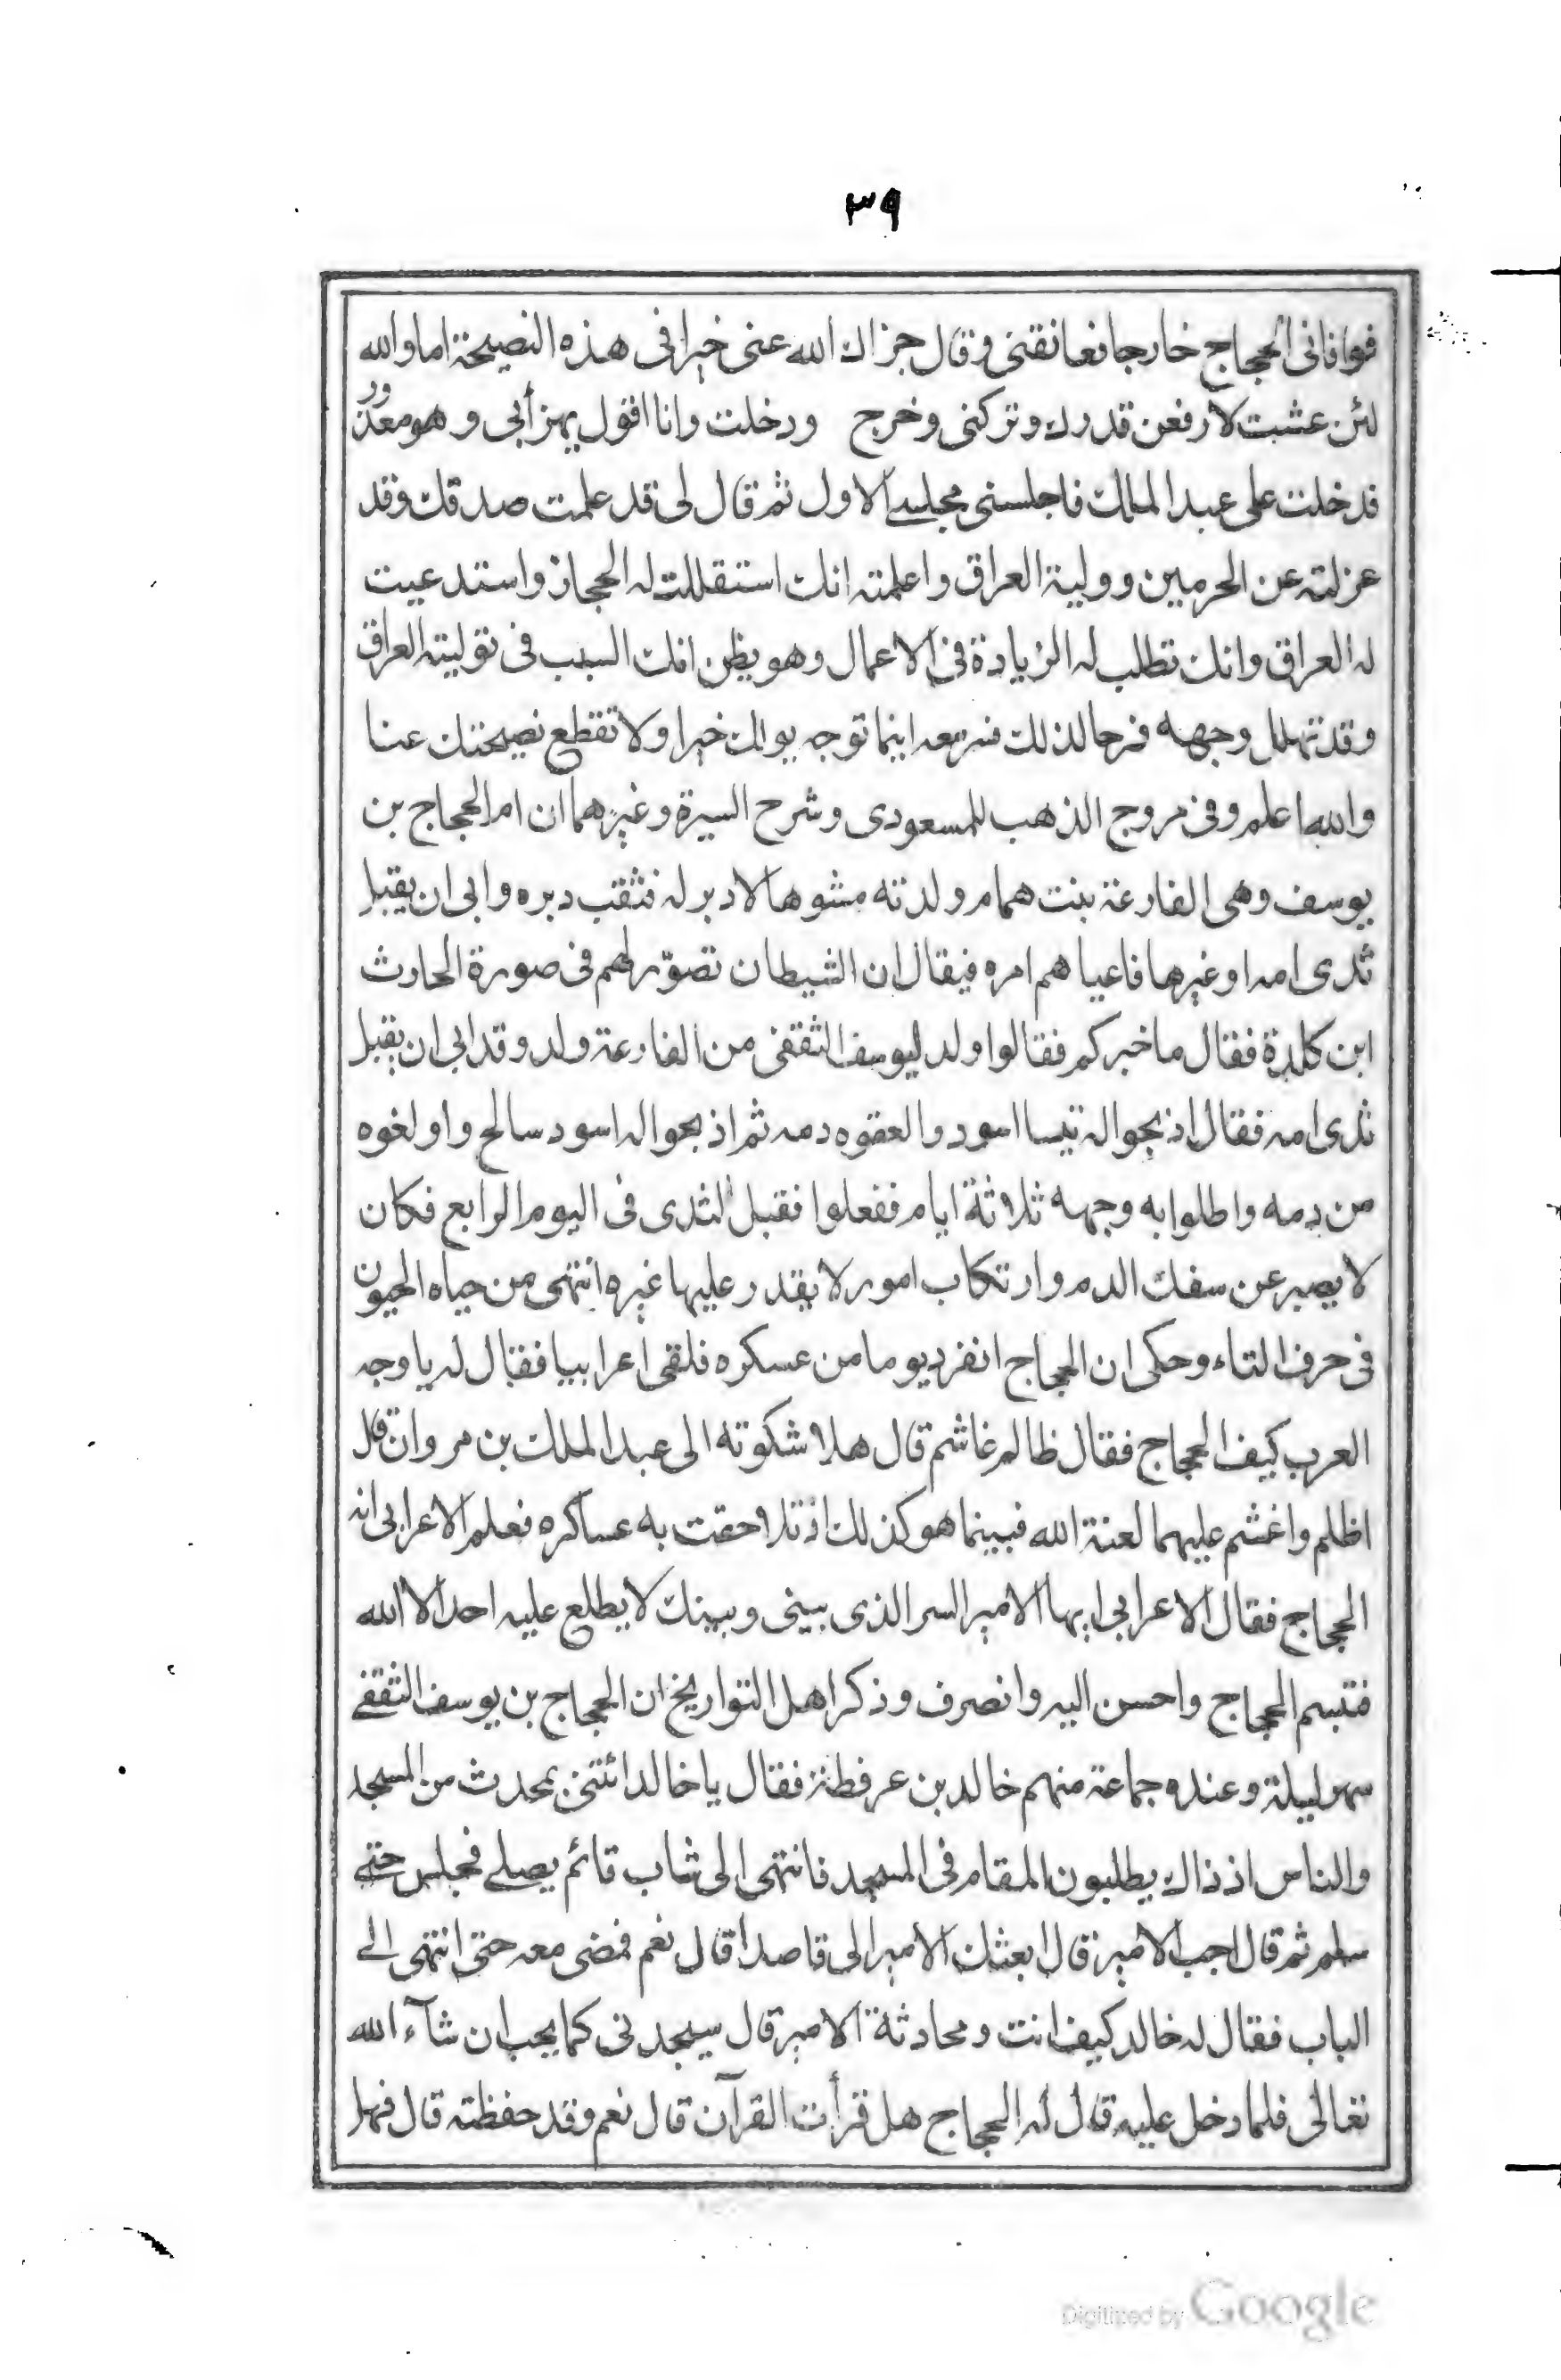 ٣٩
فوافانى الحجاج خارجا فعانقنى وقال جزاك الله عنى خيرا فى هذه النصيحة اما والله
لئن عشت لارفعن قدرك وتركنى وخرج ودخلت وانا اقول يهزأبى وهو معذور
فدخلت على عبد الملك فاجلسنى مجلسى الاول ثم قال لى قد علمت صدقك وقد
عزلته عن الحرمين ووليته العراق واعلمته انك استقللت له الحجاز واستدعيت
له العراق وانك تطلب له الزيادة فى الاعمال وهو يظن انك السبب فى توليته العراق
وقد تهلل وجهه فرحا لذلك فسر معه اينما توجه يوالك خيرا ولا تقطع نصيحتك عنا
والله اعلم وفى مروج الذهب للمسعودى وشرح السيرة وغيرهما ان ام الحجاج بن
يوسف وهى الفارعة بنت همام ولدته مشوها لا دبر له فثقب دبره وابى ان يقبل
ثدى امه اوغيرها فاعياهم امره فيقال ان الشيطان تصوّر لهم فى صورة الحارث
ابن كلدة فقال ما خبركم فقالوا ولد ليوسف الثقفى من الفارعة ولد وقد ابى ان يقبل
ثدى امه فقال اذبحوا له تيسا اسود والعقوه دمه ثم اذبحوا له اسود سالح واولغوه
من دمه واطلوا به وجهه ثلاثة ايام ففعلوا فقبل الثدى فى اليوم الرابع فكان
لا يصبر عن سفك الدم وارتكاب امور لا يقدر عليها غيره انتهى من حياه الحيون
فى حرف التاء وحكى ان الحجاج انفرد يوما من عسكره فلقى اعرابيا فقال له يا وجه
العرب كيف الحجاج فقال ظالم غاشم قال هلا شكوته الى عبد الملك بن مروان قال
اظلم واغشم عليهما لعنة الله فبينما هو كذلك اذ تلاحقت به عساكره فعلم الاعرابى انه
الحجاج فقال الاعرابى ايها الامير السر الذى بينى وبينك لا يطلع عليه احد الا الله
فتبسم الحجاج واحسن اليه وانصرف وذكر اهل التواريخ ان الحجاج بن يوسف الثقفى
سهر ليلة وعنده جماعة منهم خالد بن عرفطة فقال يا خالد ائتنى بمحدث من المسجد
والناس اذ ذاك يطلبون المقام فى المسجد فانتهى الى شاب قائم يصلى فجلس حتى
سلم ثم قال اجب الامير قال ابعثك الامير الى قاصدا قال نعم فمضى معه حتى انتهى الى
الباب فقال له خالد كيف انت ومحادثة الامير قال سيجدنى كما يحب ان شآء الله
تعالى فلما دخل عليه قال له الحجاج هل قرأت القرآن قال نعم وقد حفظته قال فهل
Digitized by Google